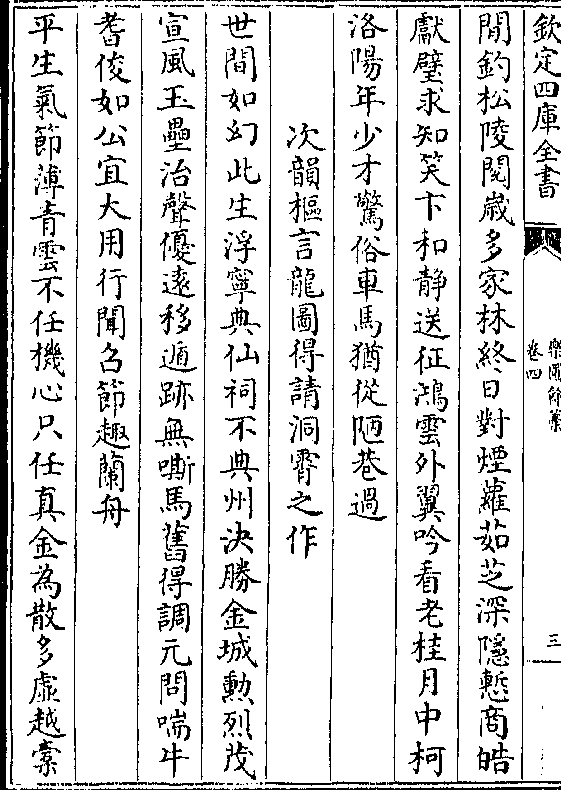 欽定四庫全書
樂圃餘藁
卷四
三
閒釣松陵閱歲多家林終日對煙蘿茹芝深隱慙商皓
獻璧求知笑卞和靜送征鴻雲外翼吟看老桂月中柯
洛陽年少才驚俗車馬猶從陋巷過
次韻樞言龍圖得請洞霄之作
世間如幻此生浮寧典仙祠不典州決勝金城勲烈茂
宣風玉壘治聲優遠移遁跡無嘶馬舊得調元問喘牛
耆俊如公宜大用行聞召節趣蘭舟
平生氣節薄青雲不任機心只任真金為散多虛越橐